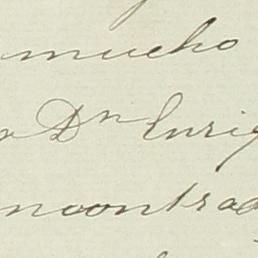 mucho
Dn Enriq
ncontrad